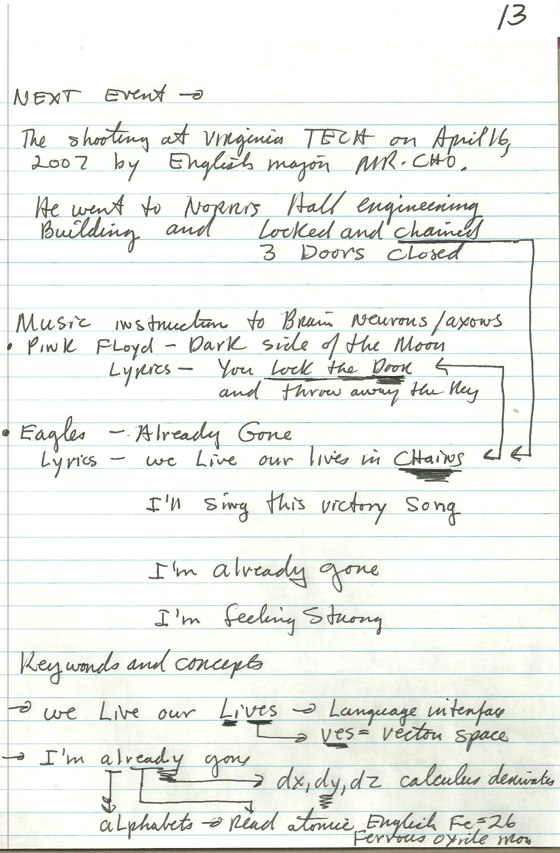 13
NEXT Event →
The shooting at Virginia TECH on April 16,
2007 by English major MR. CHO.
He went to Norris Hall engineering
Building and locked and chained
3 Doors closed
Music instruction to Brain Neurons/axons
• Pink Floyd - Dark side of the Moon
Lyrics - You lock the Door
and throw away the Key
• Eagles - Already Gone
Lyrics - we Live our lives in CHains
I'll sing this victory song
I'm already gone
I'm feeling Strong
Keywords and concepts
→ we Live our Lives → Language interface
ves = vector space
→ I'm already gone
dx, dy, dz calculus derivates
alphabets → Read atomic English Fe = 26
Ferrous oxide